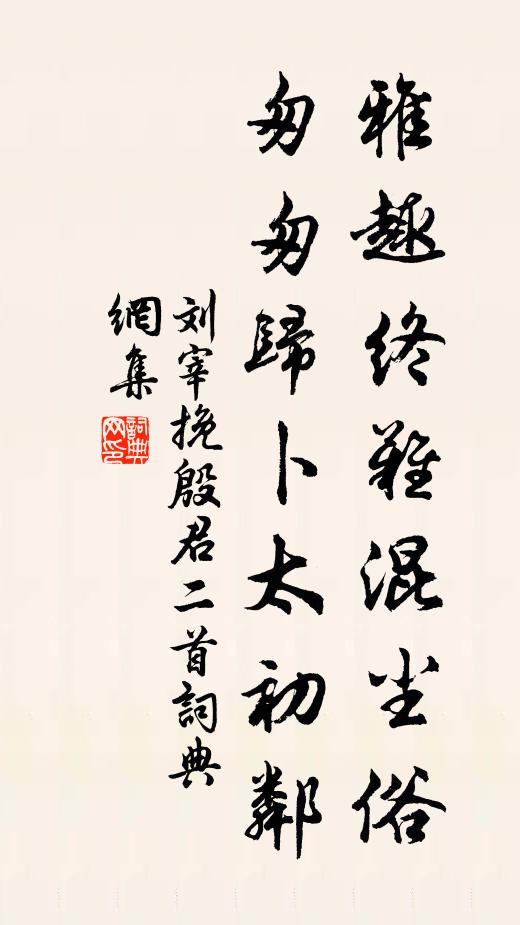 雅趣终难混尘俗
匆匆歸卜太初鄰
刘宰挽殷君二首詞典
網集
詞典
网印